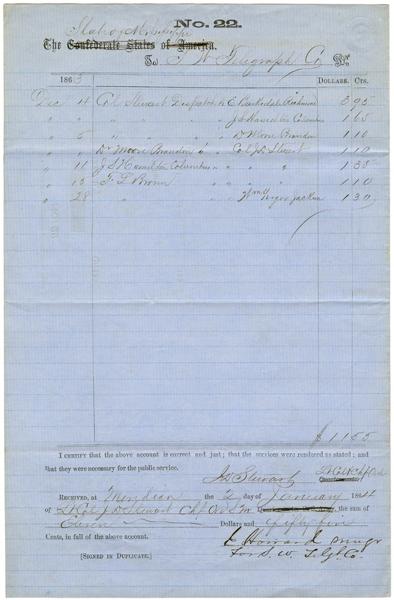 No. 22.
State of Mississippi
The Confederate States of America.
To S. W. Telegraph Co Dr.
1863 DOLLARS. CTS.
Dec 4 Col Stewart Despatch to E Barksdale Richmond 3 95
" " " " " J S Hamilton 1 65
" 5 " " " Dr Moore Brandon 1 10
" " Dr Moore Brandon to Col J D Stewart 1 10
" 11 J S Hamilton Columbus " " " 1 35
" 13 " " " 1 10
" 28 Wm 1 30
$ 11 55
I CERTIFY that the above account is correct and just; that the services were rendered as stated; and
that they were necessary for the public service.
J D Stewart Lt Col & Chf Ord
RECEIVED, at Meridian the 2 day of January 1864
of Lt Col J D Stewart Chf Ord S M the sum of
Eleven Dollars and fifty five
Cents, in full of the above account.
[SIGNED IN DUPLICATE.]
Howard
For S. W. Tel Co.